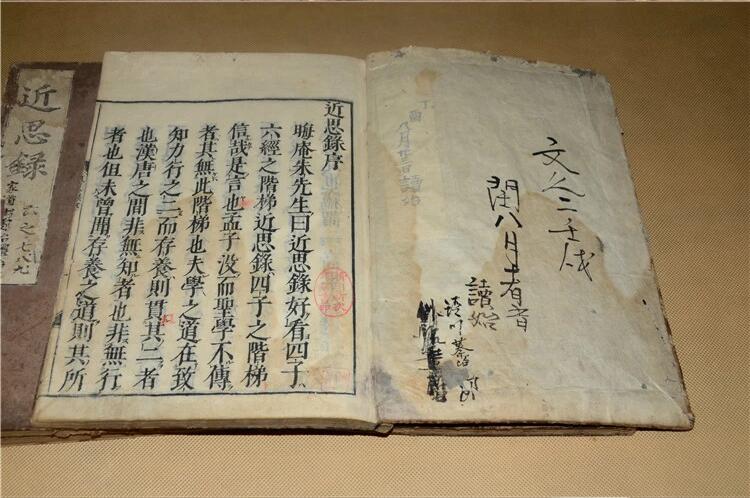 文久二壬戌
閏八月
讀始
丁酉八月廿三日讀始
近思錄序
晦庵朱先生曰近思錄好看四子
六經之階梯近思錄四子之階梯
信哉是言也孟子没而聖學不傳
者其無此階梯也夫學之道在致
知力行之二而存養則貫其二者
也漢唐之間非無知者也非無行
者也但未曾聞存養之道則其所
近思錄
六之七八九